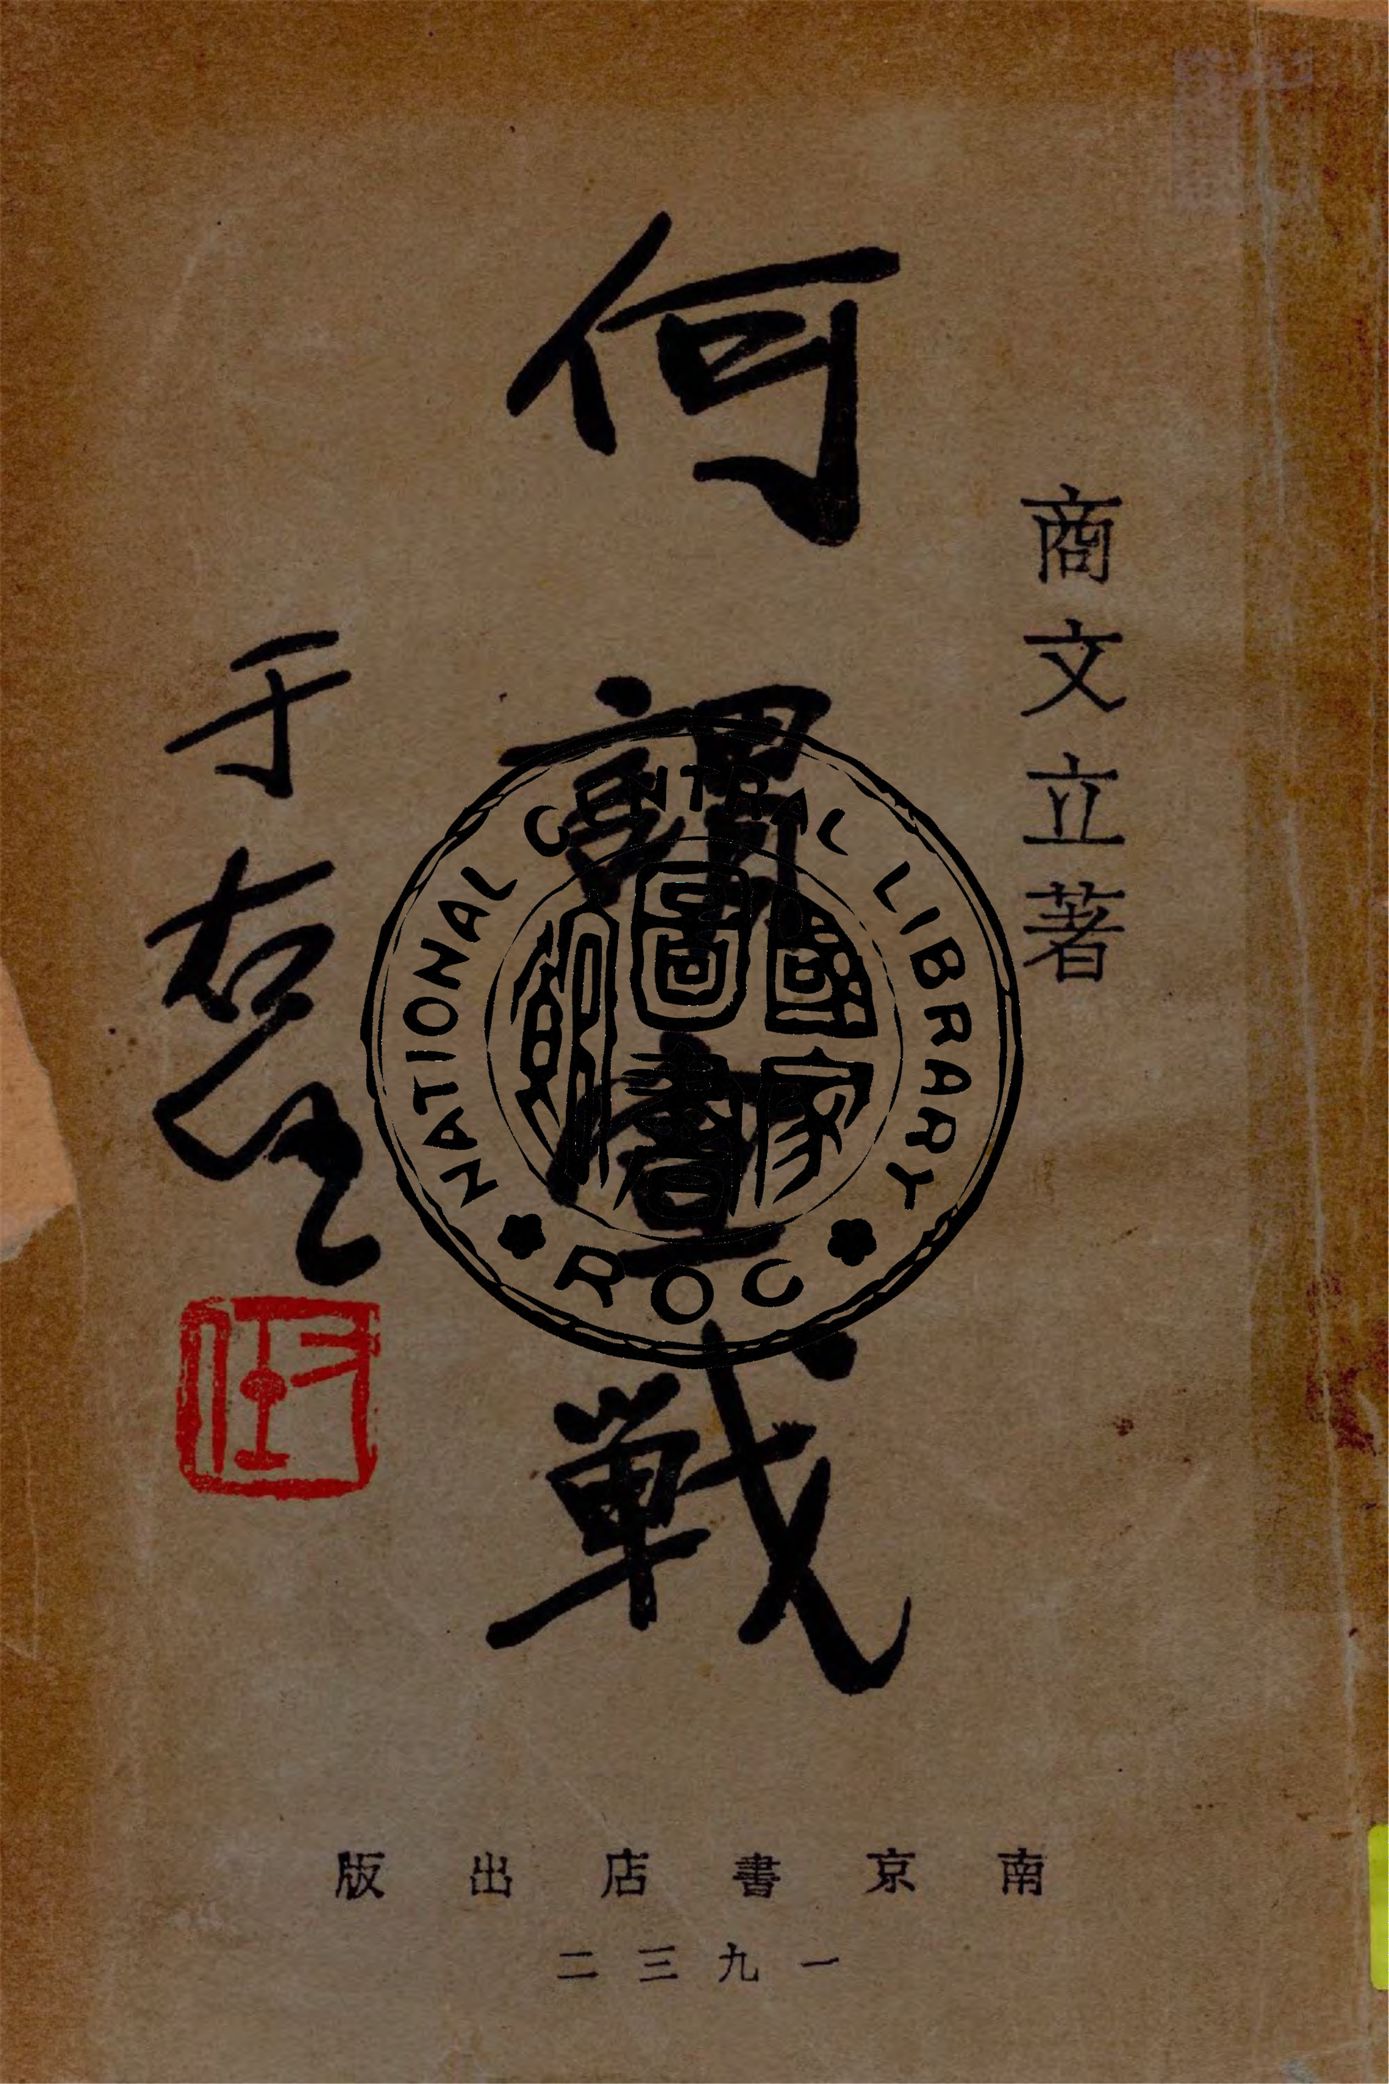 商文立著
何謂宣戰
于右任
右任
NATIONAL CENTRAL LIBRARY
國家圖書館
ROC
南京書店出版
一九三二